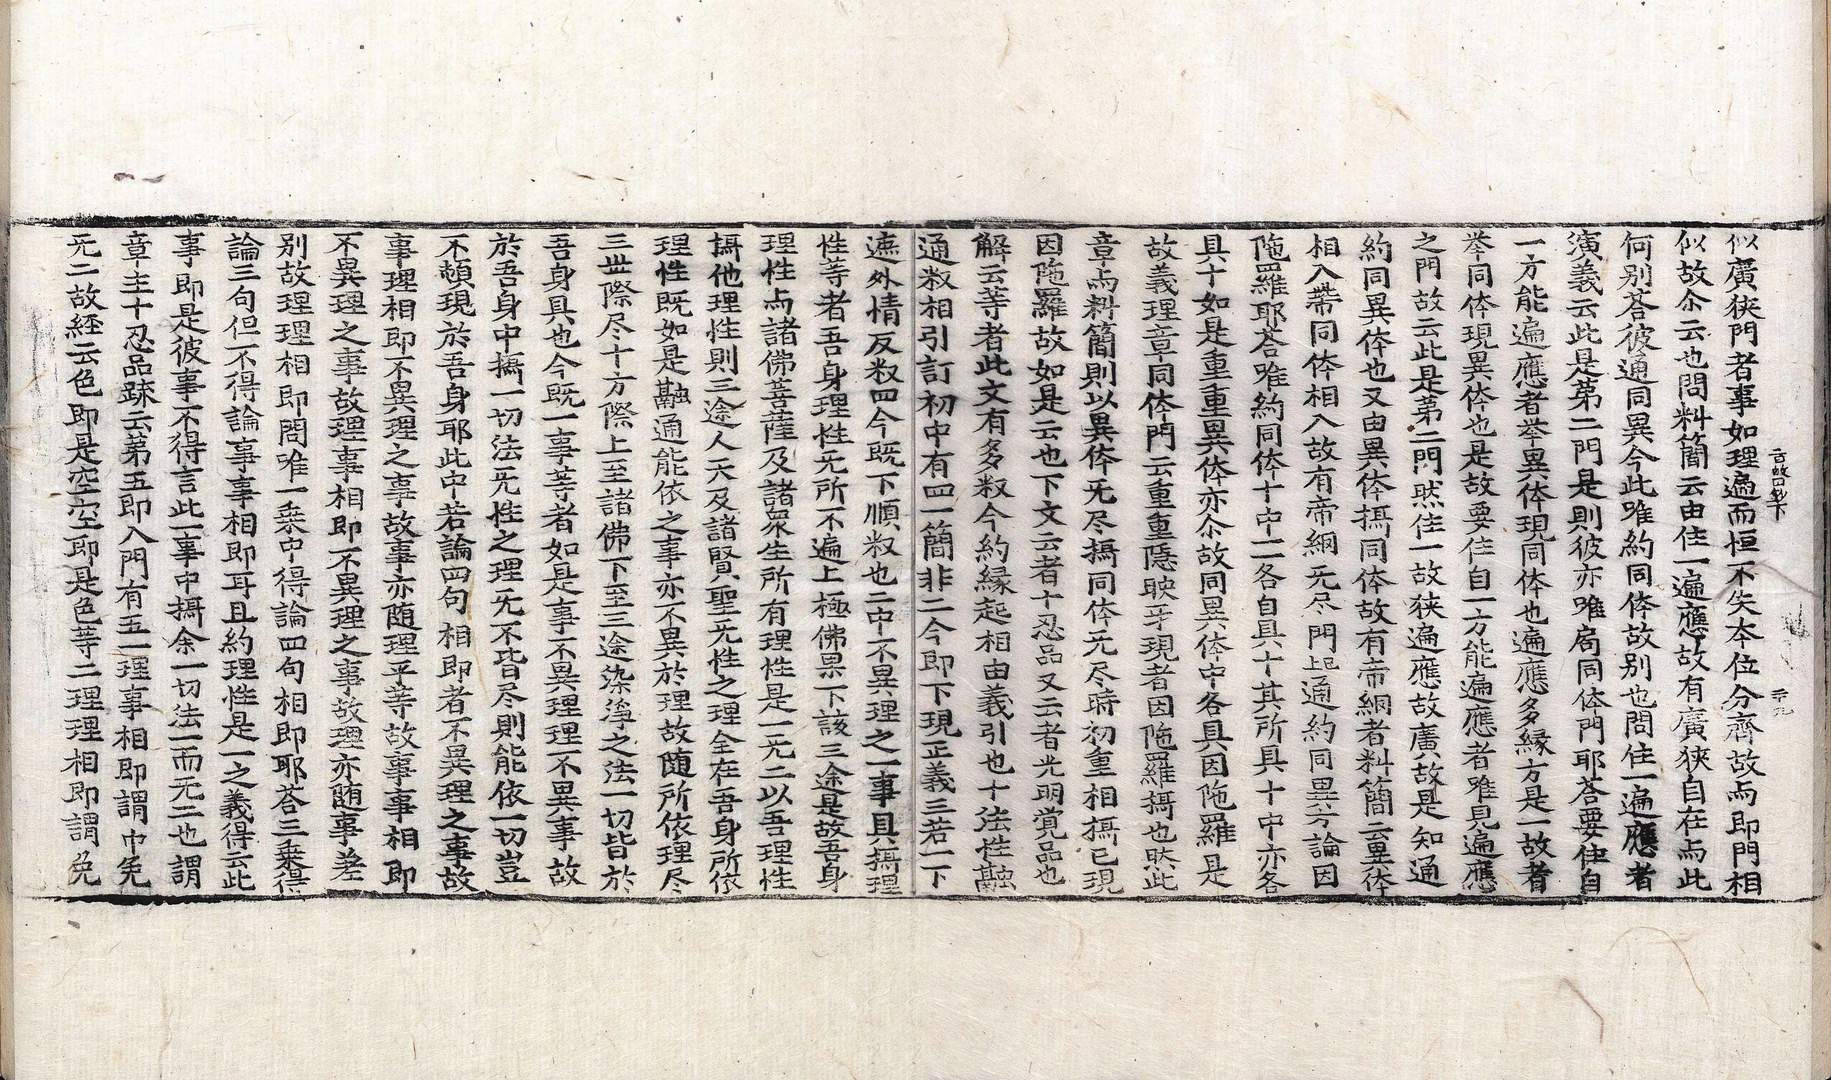 似廣狹門者事如理遍而恒不失本位分齊故与即門相
似故尒云也問料簡云由住一遍應故有廣狹自在与此
何別荅彼通同異今此唯約同体故別也問住一遍應者
演義云此是第二門是則彼亦唯局同体門耶荅要住自
一方能遍應者举異体現同体也遍應多緣方是一故者
举同体現異体也是故要住自一方能遍應者唯見遍應
之門故云此是第二門然住一故狹遍應故廣故是知通
約同異体也又由異体攝同体故有帝網者料簡云異体
相入帶同体相入故有帝網无尽門起通約同異方論因
陁羅耶荅唯約同体十中一各自具十其所具十中亦各
具十如是重重異体亦尒故同異体中各具因陁羅是
故義理章同体門云重重隱映互現者因陁羅攝也然此
章与料簡則以異体无尽攝同体无尽時初重相攝已現
因陁羅故如是云也下文云者十忍品又云者光明覺品也
解云等者此文有多敎今約緣起相由義引也十法性融
通敎相引訂初中有四一簡非二今即下現正義三若一下
遮外情反敎四今既下順敎也二中不異理之一事具攝理
性等者吾身理性无所不遍上極佛果下該三途是故吾身
理性与諸佛菩薩及諸衆生所有理性是一无二以吾理性
攝他理性則三途人天及諸賢聖无性之理全在吾身所依
理性既如是融通能依之事亦不異於理故随所依理尽
三丗際尽十方際上至諸佛下至三途染淨之法一切皆於
吾身具也今既一事等者如是事不異理理不異事故
於吾身中攝一切法无性之理无不皆尽則能依一切豈
不頓現於吾身耶此中若論四句相即者不異理之事故
事理相即不異理之事故事亦随理平等故事事相即
不異理之事故理事相即不異理之事故理亦随事差
別故理理相即問唯一乘中得論四句相即耶荅三乘得
論三句但不得論事事相即耳且約理性是一之義得云此
事即是彼事不得言此一事中攝余一切法一而无二也謂
章主十忍品䟽云第五即入門有五一理事相即謂巾兎
无二故經云色即是空空即是色等二理理相即謂兎